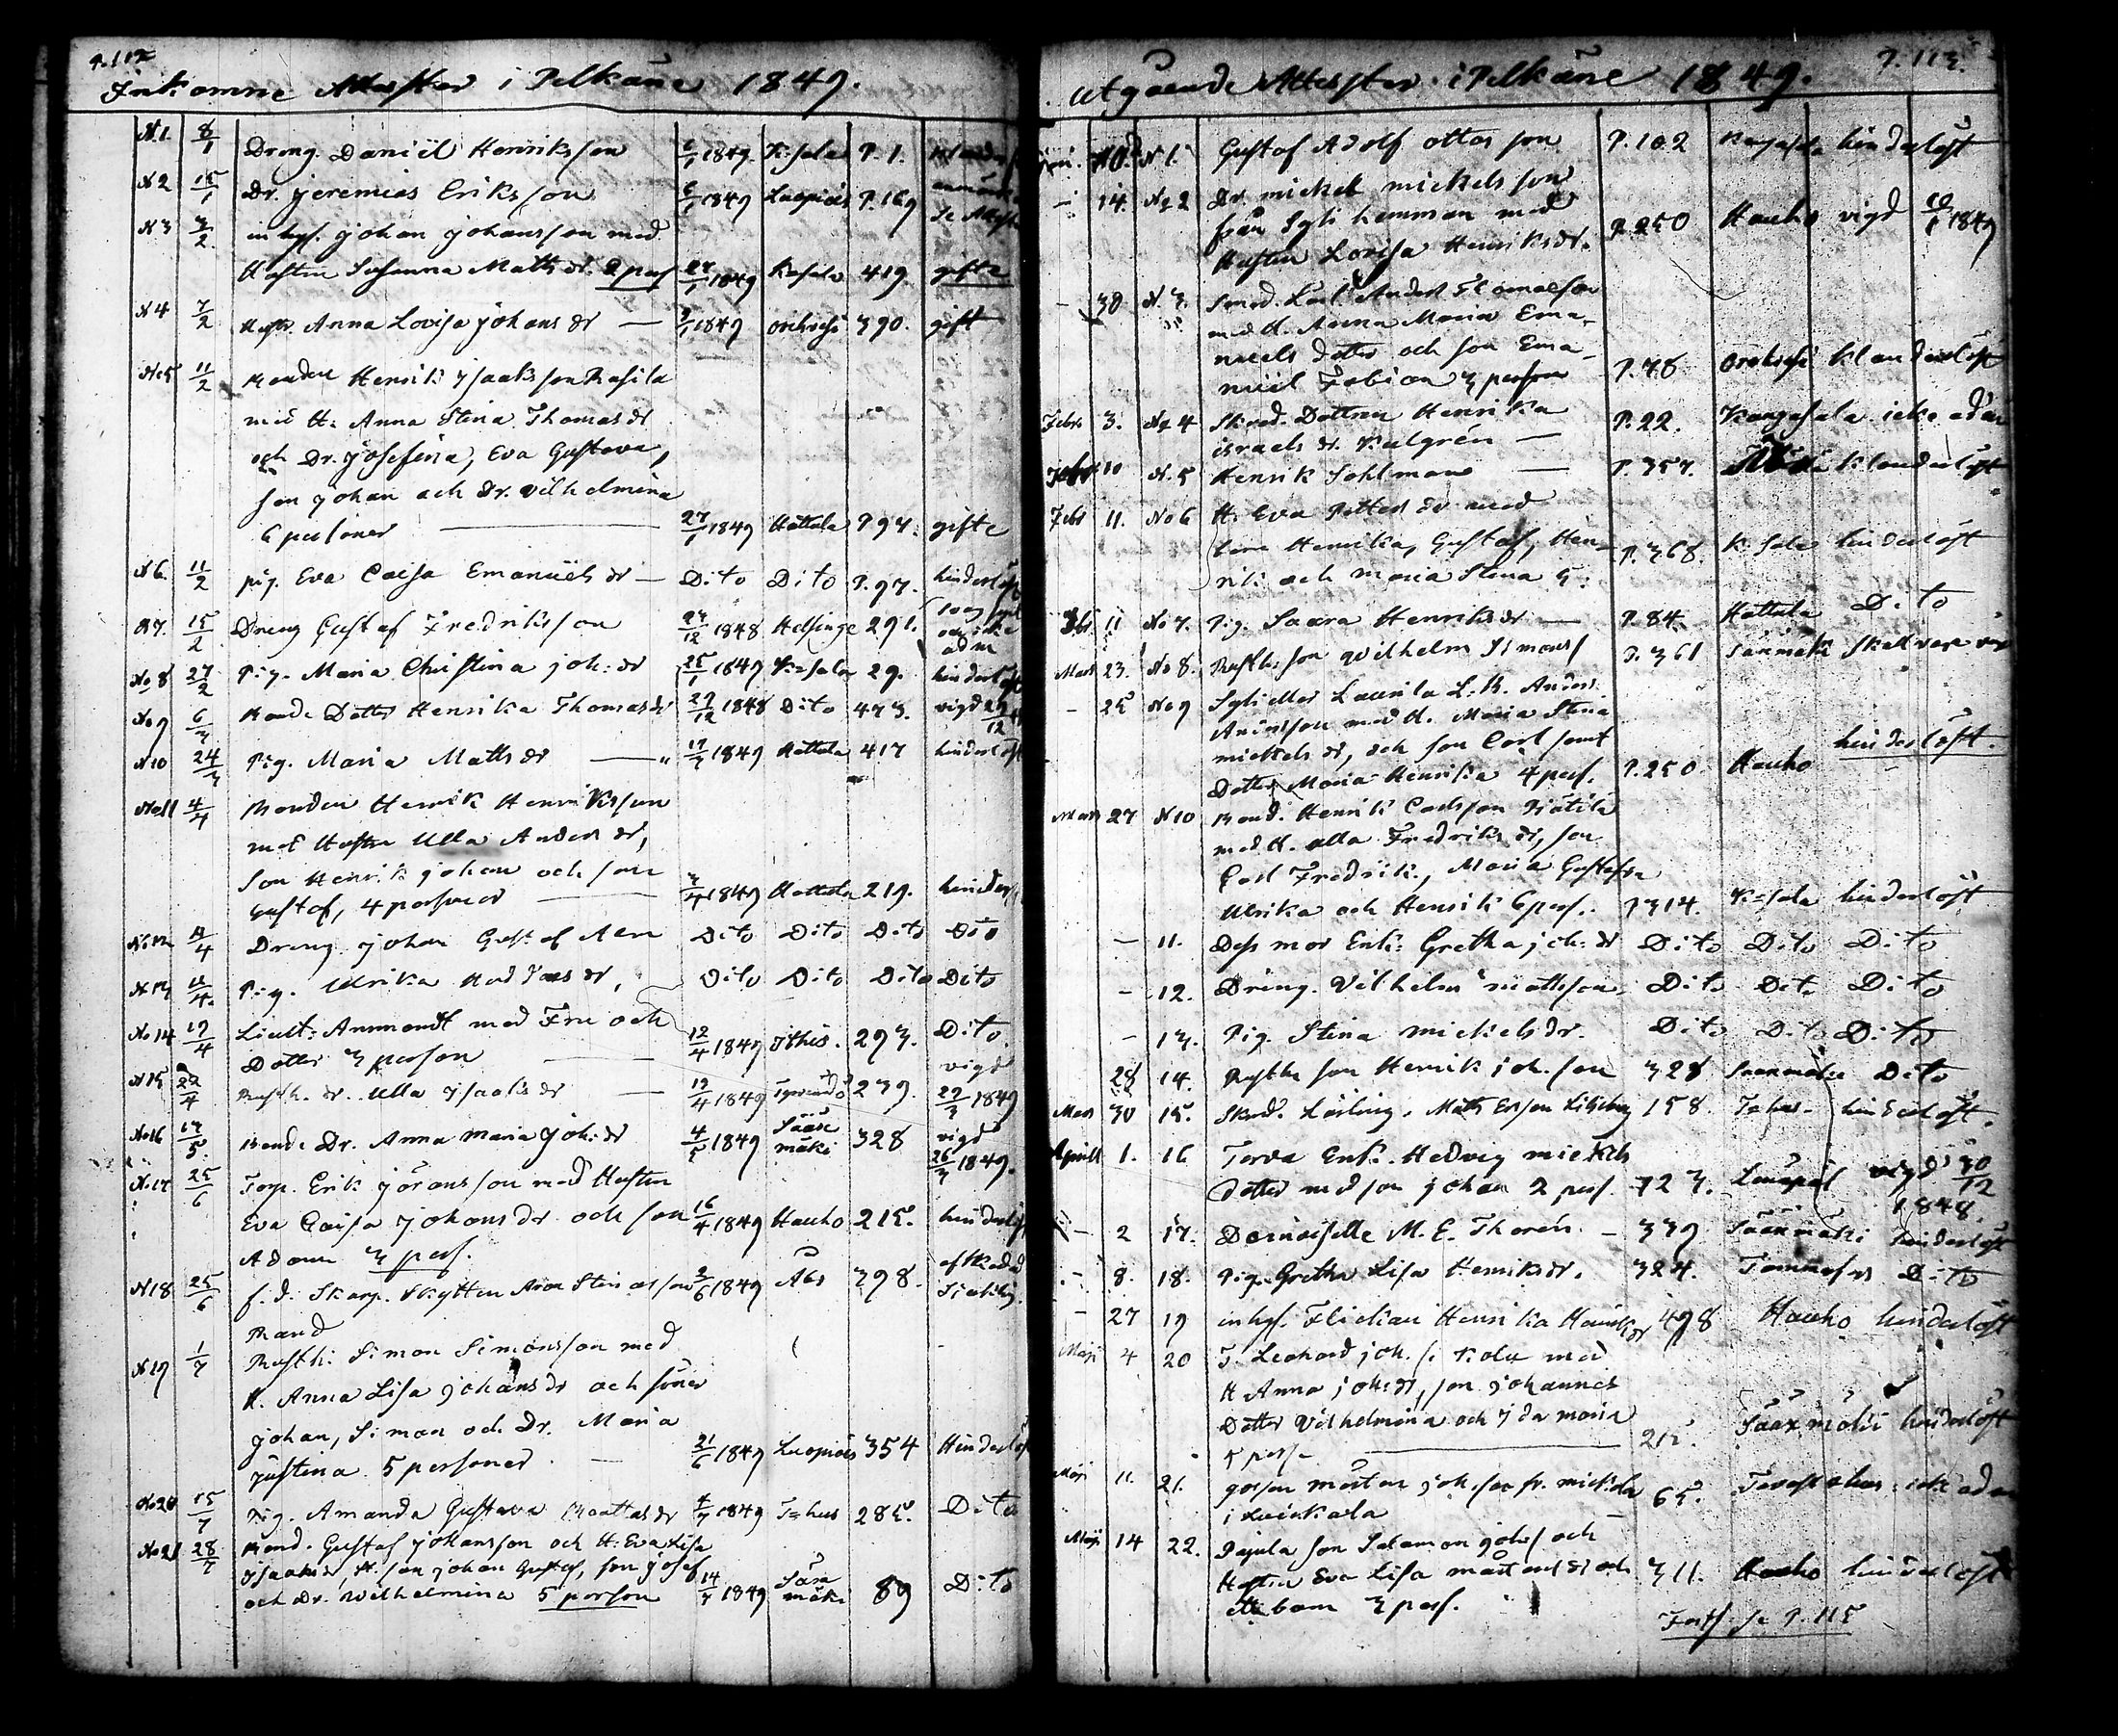 P. 112
Inkomne Attester i Pelkäne 1849.
N.1 8/1 Dreng Daniel Henriksson 1849. K:sala P. 1.
N 2 15/1 Dr. Jeremias Eriksson 1849 Luopiois P. 169
N 3 3/2 inhys. Johan Johansson med
Hustru Susanna Matts dr. 2 pers 27/1 1849 K:sala 419. gifte
N 4 7/2 Anna Lovisa Johans dr — 1849 Orihvesi 390. gift
No 5 11/2 Bonden Henrik Isaaksson
med H: Anna Stina Thomas dr
och Dr. Josefina, Eva Gustava,
son Johan och dr. Vilhelmina
6 personer — 27/1 1849 Hattula P. 97. gifte
N 6. 11/2 pig. Eva Caisa Emanuels dr — Dito Dito P. 97. hinderlöst
N 7. 15/2 Dreng Gustaf Fredriksson 27/12 1848 Helsinge 291.
No 8 27/2 Pig. Maria Christina Joh: dr 25/1 1849 K=sala 29. hinderlöst
No 9 6/3 Bonde Dotter Henrika Thomas dr 29/12 1848 Dito 473. vigd
N 10 24/3 Pig. Maria Matts dr — 17/3 1849 Hattula 417 hinderlöst
No 11 4/4 Bonden Henrik Henriksson
med Hustru Ulla Anders dr,
Son Henrik Johan och son
Gustaf, 4 personer — 1849 Hattula 219. hinder
No 12 /4 Dreng Johan Gustaf Dito Dito Dito Dito
N 13 /4. Pig. Ulrika dr, Dito Dito Dito Dito
No 14 19/4 Lieut: Ammondt med Fru och
Dotter 3 person — 12/4 1849 293. Dito.
N 15 22/4 Rusth. dr. Ulla Isaaks dr — 19/4 1849 239. vigd 27/3 1849
No 16 17/5. Bonde Dr. Anna Maria Joh: dr 4/5 1849 Sääxmäki 328 vigd 26/3 1849.
N. 17 25/6 Torp. Erik Jöransson med Hustru
Eva Caisa Johans dr och son 16/4 1849 Hauho 215. hinderlöst
Adam 3 pers.
N 18 25/6 f. d. Skarp. Skytten 1849 Åbo 398.
N 19 1/7 Rusth: Simon Simonsson med
H. Anna Lisa Johans dr och söner
Johan, Simon och Dr. Maria
Justina 5 personer — 21/6 1849 Luopiois 354 Hinderlöst
No 20 15/7 Pig. Amanda Gustava dr 1849 T=hus 285. Dito
No 21 28/7 Bond. Gustaf Johansson och H: Eva Lisa
Isaaks dr, son Johan Gustaf, son Josef
och Dr. Wilhelmina 5 person 14/7 1849 Sääxmäki 89 Dito
P. 113.
Utgående Attester i Pelkäne 1849.
N 1. Gustaf Adolf Ottos son P. 102 Kangasala hinderlöst
— 14. No 2 Dr. Mickel Mickelsson
från Syli hemman med
Hustru Lovisa Henriks dr. P. 250 Hauho vigd 1849
— 30 N. 3. Anders Thomasson
med H. Anna Maria Ema-
nuels dotter och son Ema-
nuel Fabian 3 person P. 78. Orihvesi klanderlöst
Febr. 3. No 4 Skred. Dottren Henrika
Israels dr. Kulgrén — P. 22. Kangasala icke adm
Febr 10 N. 5 Henrik Sohlman — P. 357. klanderlöst
Febr 11. No 6 H. Eva Petters dr med
barn Henrika, Gustaf, Hen-
rik och Maria Stina 5. P. 368. K:sala hinderlöst
Febr 11 No 7. Pig. Saara Henriks dr — P. 84. Hattula Dito
Mars 23. No 8. Rusth: son Wilhelm Simons P. 361 Sääxmäki
— 25 No 9 Syli eller Laurila L. B. Anders
Andersson med H. Maria Stina
Mickels dr, och son Carl samt
Dotter Maria Henrika 4 pers. P. 250 Hauho hinderlöst.
Mars 27 N 10 Bond. Henrik Carlsson
med H. Ulla Fredriks dr, son
Carl Fredrik, Maria Gustafva
Ulrika och Henrik 6 pers. P 314. K=sala hinderlöst
— 11. Dess mor Enk: Gretha Joh: dr Dito Dito Dito
— 12. Dräng. Vilhelm Mattsson Dito Dito Dito
— 13. Pig. Stina Mickels dr. Dito Dito Dito
28 14. Rusth: son Henrik Joh. son 328 Sääxmäki Dito
Mars 30 15. Skred. Lärling. Matts 158. T:hus. hinderlöst.
Aprill 1. 16 Torva Enk. Hedvig Mickels
dotter med son Johan 2 pers. 123. Luopiois vigd 30/12 1848.
— 2 17. Demoiselle M. E. Thorén. — 339 Sääxmäki hinderlöst
— 8. 18. Pig. Gretha Lisa Henriks dr. 324. Tammefors Dito
— 27 19 inhys. Flickan Henrika Henriks dr 498 Hauho hinderlöst
Maji 4 20 T. Leonard Joh. s. Kola med
H Anna Joh: dr, son Johannes
Dotter Vilhelmina och Ida Maria
5 pers — 215. Sääxmäki hinderlöst
Maji 11. 21. gossen Mårten Joh. son fr. Mickola
i Luikala 65. Tavastehus icke adm
Maji 14 22. Pajula son Salomon Joh. s och
Hustru Eva Lisa Mårtens dr och
ett barn 3 pers. 311. Hauho hinderlöst
Forts. se P. 115